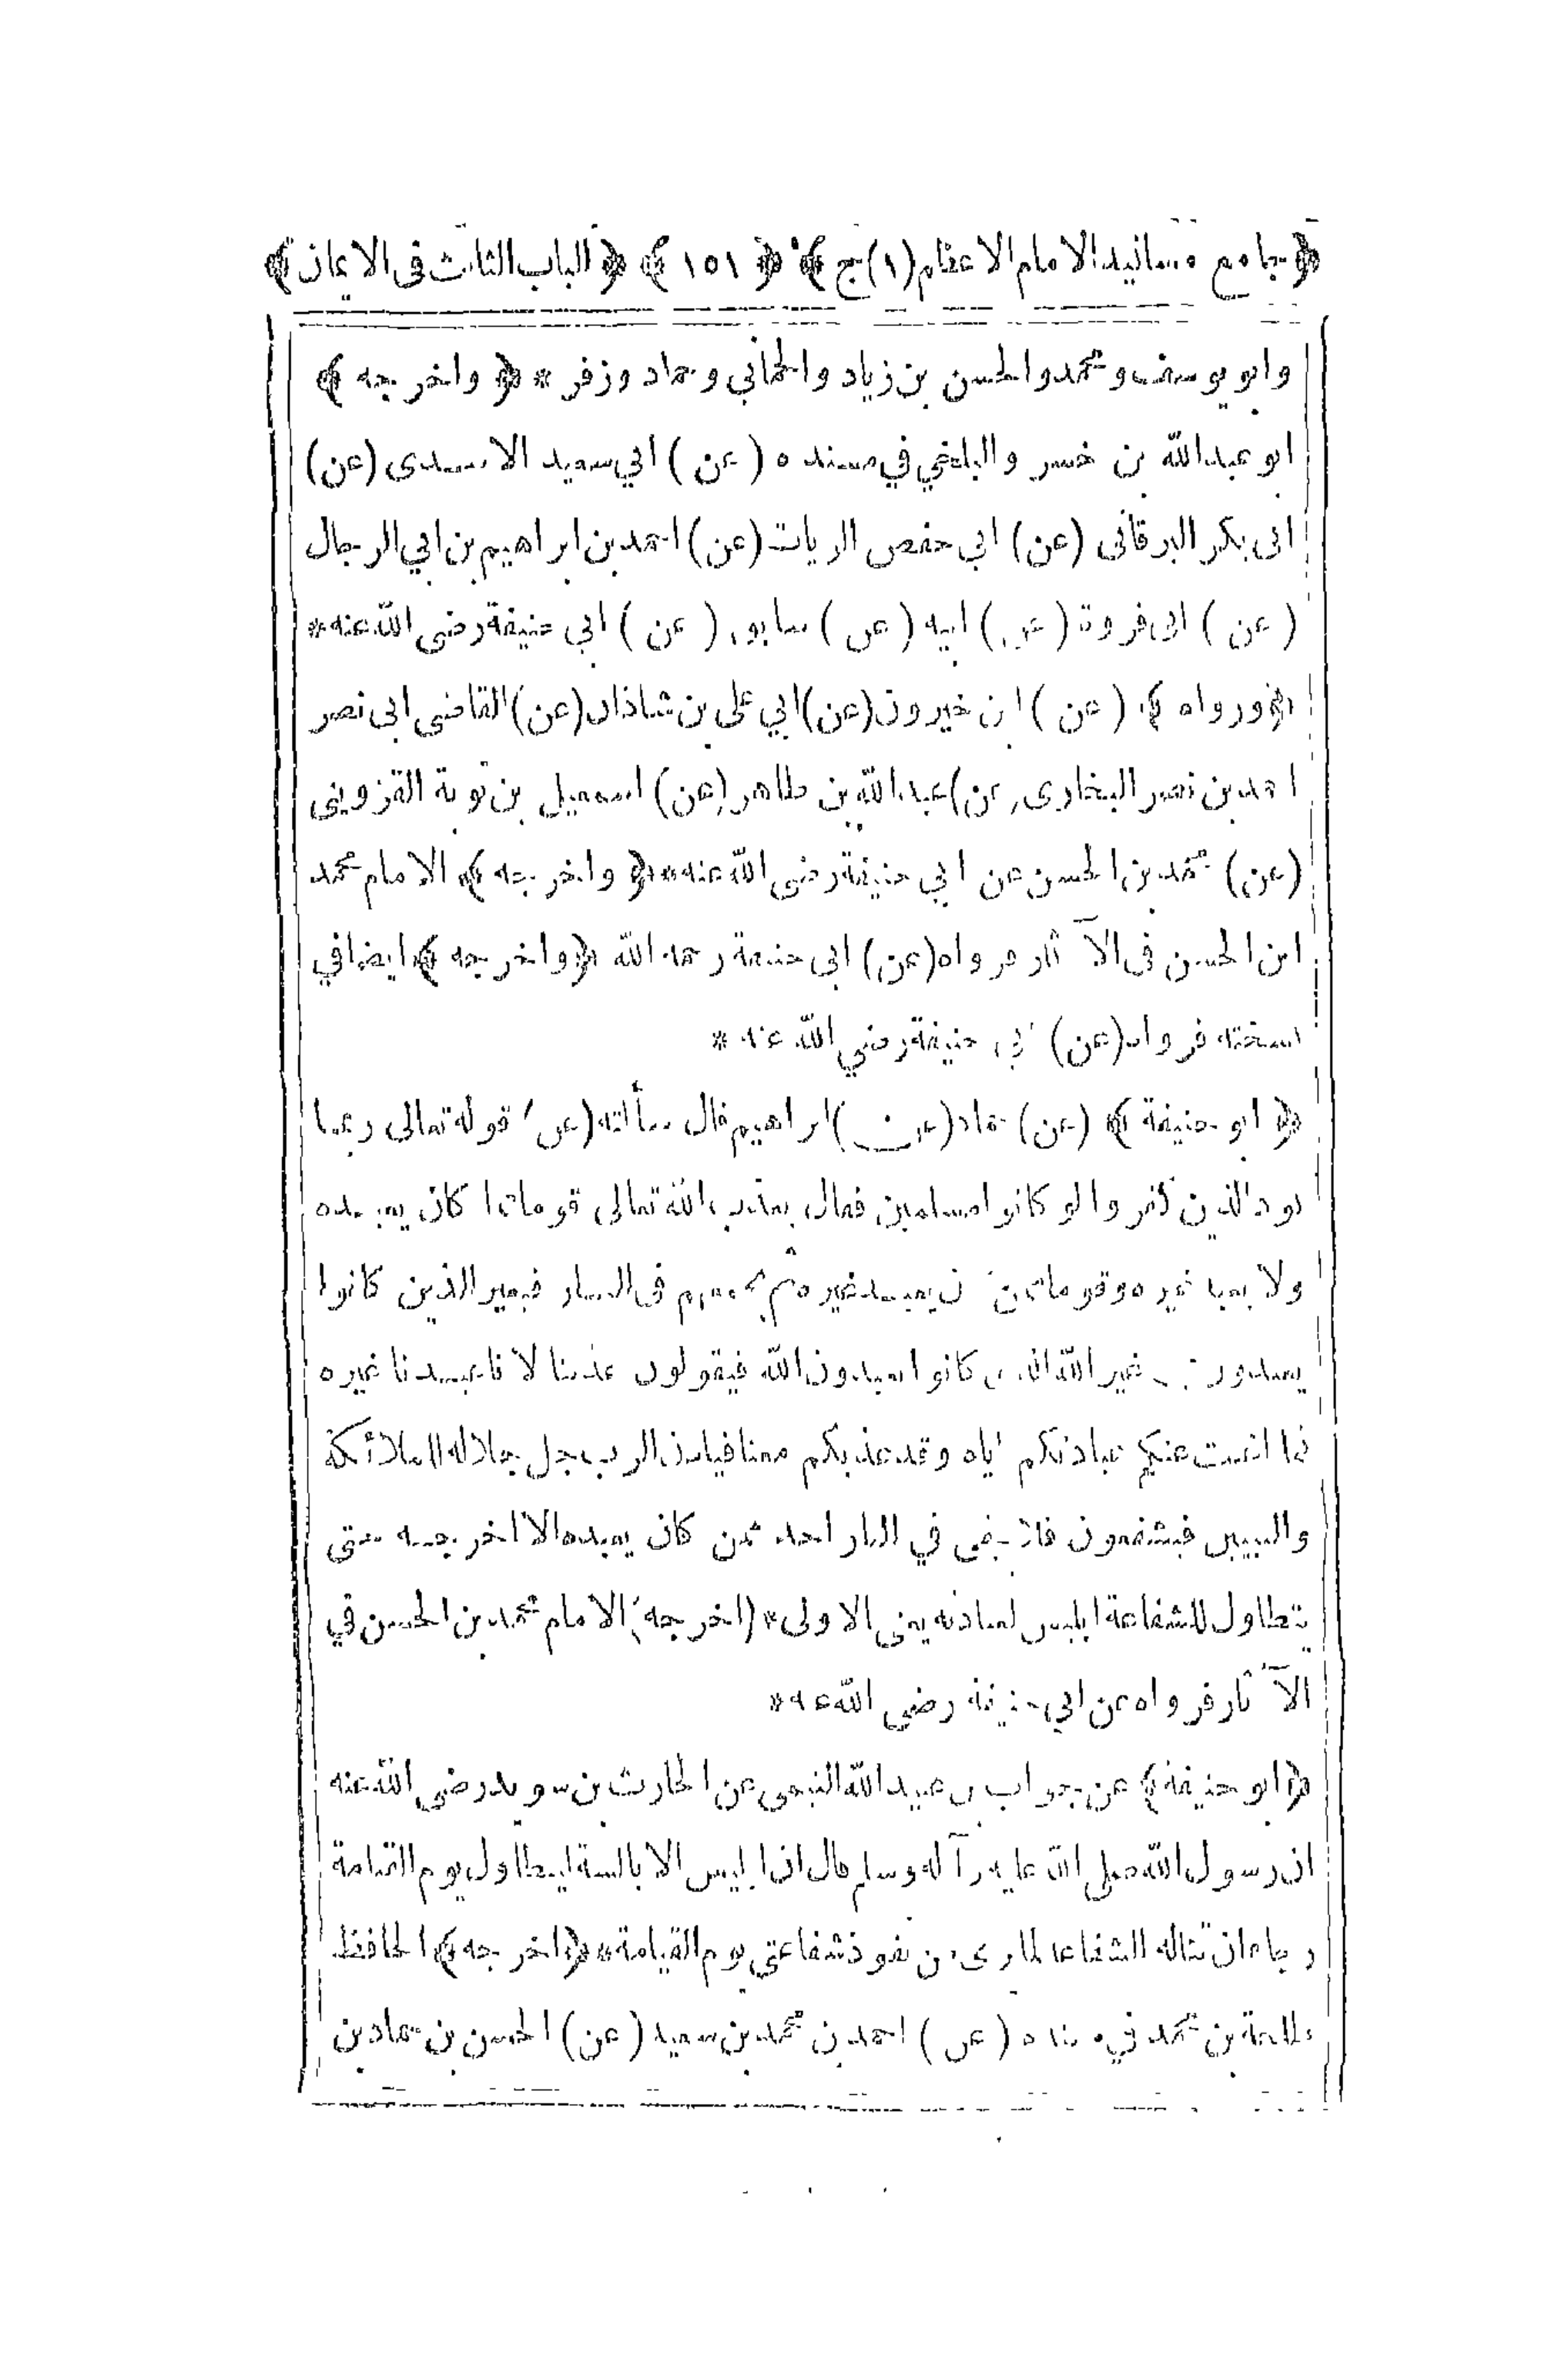 ﴿جامع مسانيد الامام الاعظم (١) ج﴾ ﴿١٥١﴾ ﴿الباب الثالث فى الايمان﴾
وابو يوسف ومحمد والحسن بن زياد والحمانى وحماد وزفر * ﴿واخرجه﴾
ابو عبد الله بن خسرو البلخي في مسنده (عن) ابي سعيد الاسدى (عن)
ابى بكر البرقانى (عن) ابي حفص الزيات (عن) احمد بن ابراهيم بن ابي الرجال
(عن) ابى فروة (عن) ابيه (عن) سابق (عن) ابي حنيفة رضى الله عنه *
﴿ورواه﴾ (عن) ابن خيرون (عن) ابي على بن شاذان (عن) القاضى ابى نصر
احمد بن نصر البخارى (عن) عبد الله بن طاهر (عن) اسمعيل بن توبة القزوينى
(عن) محمد بن الحسن عن ابي حنيفة رضى الله عنه * ﴿واخرجه﴾ الامام محمد
ابن الحسن فى الآثار فرواه (عن) ابى حنيفة رحمه الله ﴿واخرجه﴾ ايضا في
نسخته فرواه (عن) ابي حنيفة رضي الله عنه *
﴿ابو حنيفة﴾ (عن) حماد (عن) ابراهيم قال سألته (عن) قوله تعالى ربما
يود الذين كفروا لو كانوا مسلمين فقال يعذب الله تعالى قوما ممن كان يعبده
ولا يعبد غيره وقوما ممن كان يعبد غيره ثم يجمعهم فى النار فيعير الذين كانوا
يعبدون غير الله الذين كانوا يعبدون الله فيقولون عذبنا لانا عبدنا غيره
فما اغنت عنكم عبادتكم اياه وقد عذبكم معنا فيأذن الرب جل جلاله للملائكة
والنبيين فيشفعون فلا يبقى في النار احد ممن كان يعبده الا اخرجه حتى
يتطاول للشفاعة ابليس لعبادته يعنى الاولى * (اخرجه) الامام محمد بن الحسن في
الآثار فرواه عن ابي حنيفة رضى الله عنه *
﴿ابو حنيفة﴾ عن جواب بن عبيد الله التيمى عن الحارث بن سويد رضى الله عنه
ان رسول الله صلى الله عليه وآله وسلم قال ان ابليس الابالسة ليتطاول يوم القيامة
رجاء ان تناله الشفاعة لما يرى من نفوذ شفاعتى يوم القيامة * ﴿اخرجه﴾ الحافظ
طلحة بن محمد في مسنده (عن) احمد بن محمد بن سعيد (عن) الحسن بن حماد بن